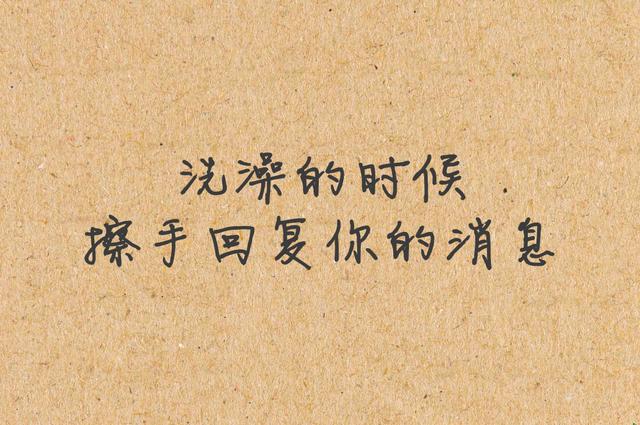 洗澡的时候
擦手回复你的消息